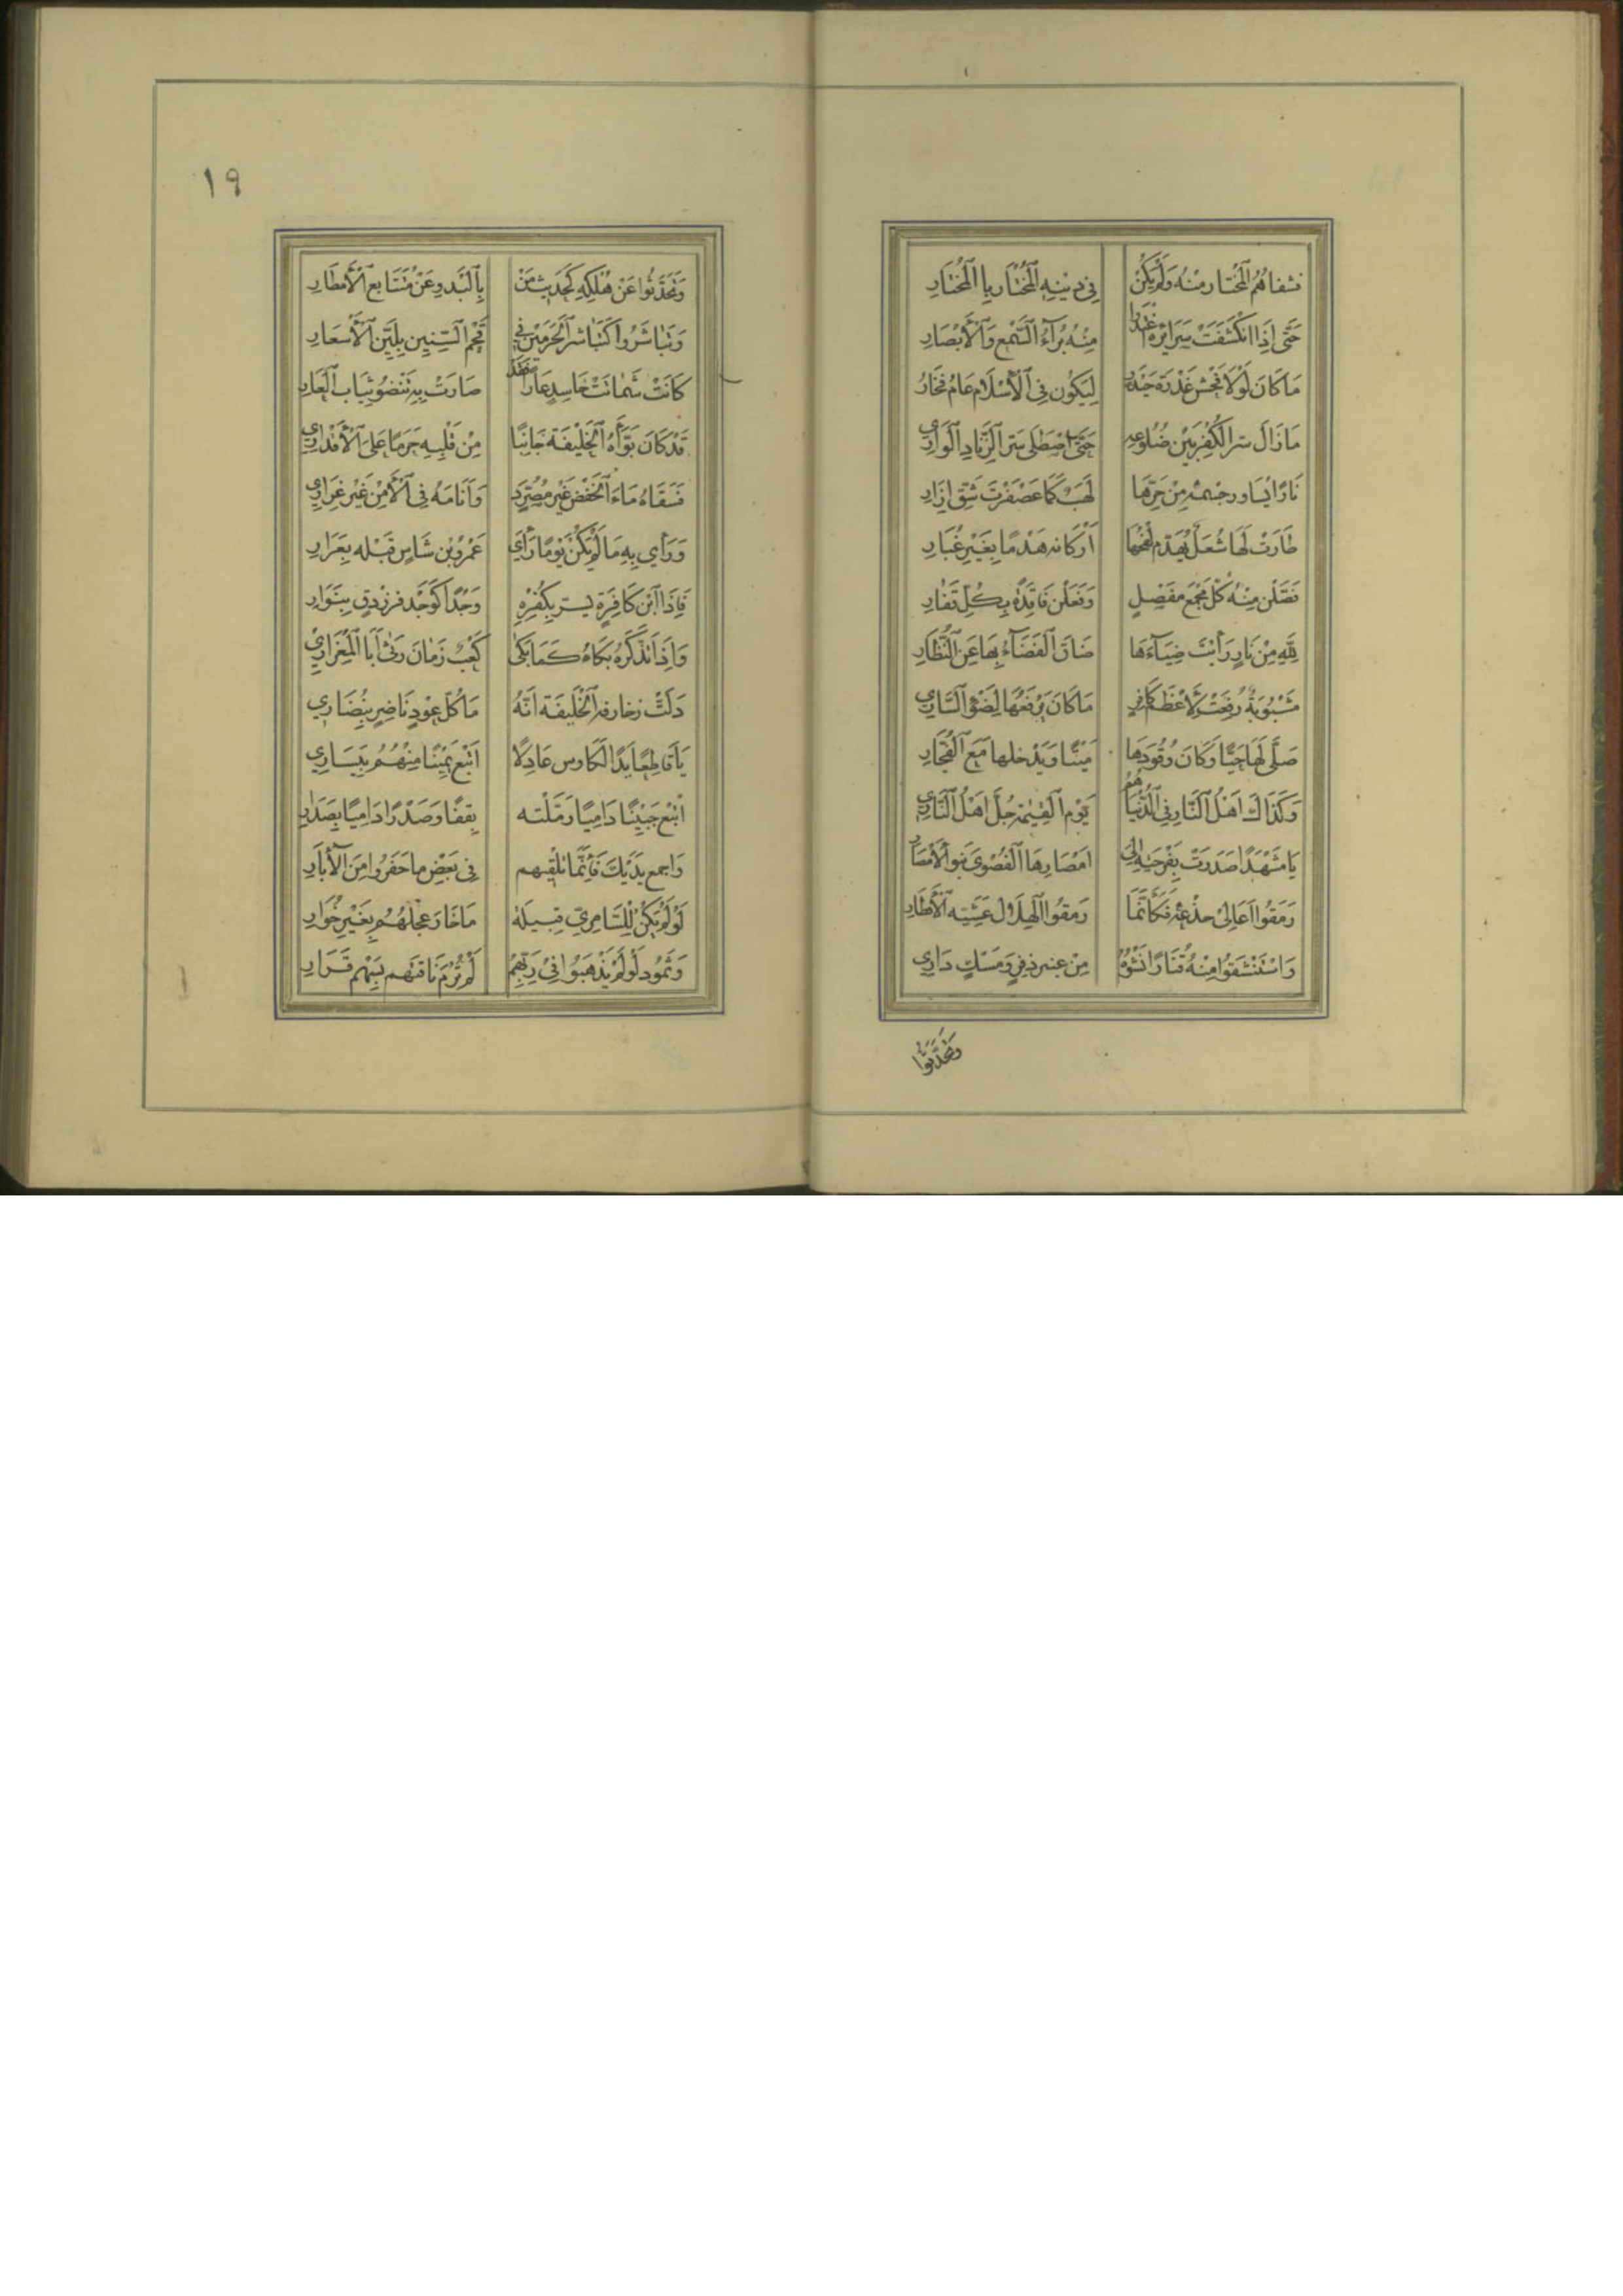 فشفاهم المختار منه ولم يكن في دينه المختار با المختار
حتى إذا انكشفت سرائره غدا منه برآء السمع والأبصار
ما كان لولا فحش غدرة حيدر ليكون في الأسلام عام فخار
ما زال سر الكفر بين ضلوعه حتى اصطلى سر الزناد الواري
نارًا يساور جسمه من حرها لهب كما عصفرت شق ازار
طارت لها شعل يهدم لفحها أركانه هدمًا بغير غبار
فصلن منه كل مجمع مفصل وفعلن فاقدة بكل فقار
لله من نار رأيت ضياءها ضاق الفضاء بها عن النظار
مشبوبة رفعت لأعظم كافر ما كان يرفعها لضوء الساري
صلى لها حيًا وكان وقودها ميتًا ويدخلها مع الفجار
وكذاك اهل النار في الدنيا هم يوم القيمة جل اهل الناري
يا مشهدا صدرت بفرحته الى امصارها القصوى بنو الأمصار
رمقوا اعالي جذعه فكأنما رمقوا الهلال عشية الأفطار
واستنشقوا منه قتارًا نشوه من عنبر ذفر ومسك داري
وتحدثوا
١٩
وتحدثوا عن هلكه كحديث من بالبدو عن متتابع الأمطار
وتباشروا كتباشر الحرمين في قحم السنين بلين الأسعار
كانت شماتت حاسد عارًا فقد صارت به تنضو ثياب العار
قد كان بوأه الخليفة جانبًا من قلبه حرمًا على الأقداري
فسقاه ماء الخفض غير مصرد وأنامه في الأمن غير غراري
ورأى به ما لم يكن يومًا رأى عمرو بن شاس قبله بعرار
فإذا ابن كافرة يسر بكفره وجدًا كوجد فرزدق بنوار
وإذا تذكره بكاه كما بكى كعب زمان رثى أبا المغراري
دلت زخارفه الخليفة انه ما كل عود ناضر بنضاري
يا قابضا يد الكاوس عادلا اتبع يمينا منهم بيساري
اتبع جبينًا داميًا رملته بقفًا وصدرًا داميًا بصدار
واجمع يديك فإنما تلقيهم في بعض ما حفروا من الأبار
لو لم يكن للسامري قبيلة ما خار عجلهم بغير خوار
وثمود لو لم يذهبوا في ربهم لم ترم ناقتهم بسهم قرار